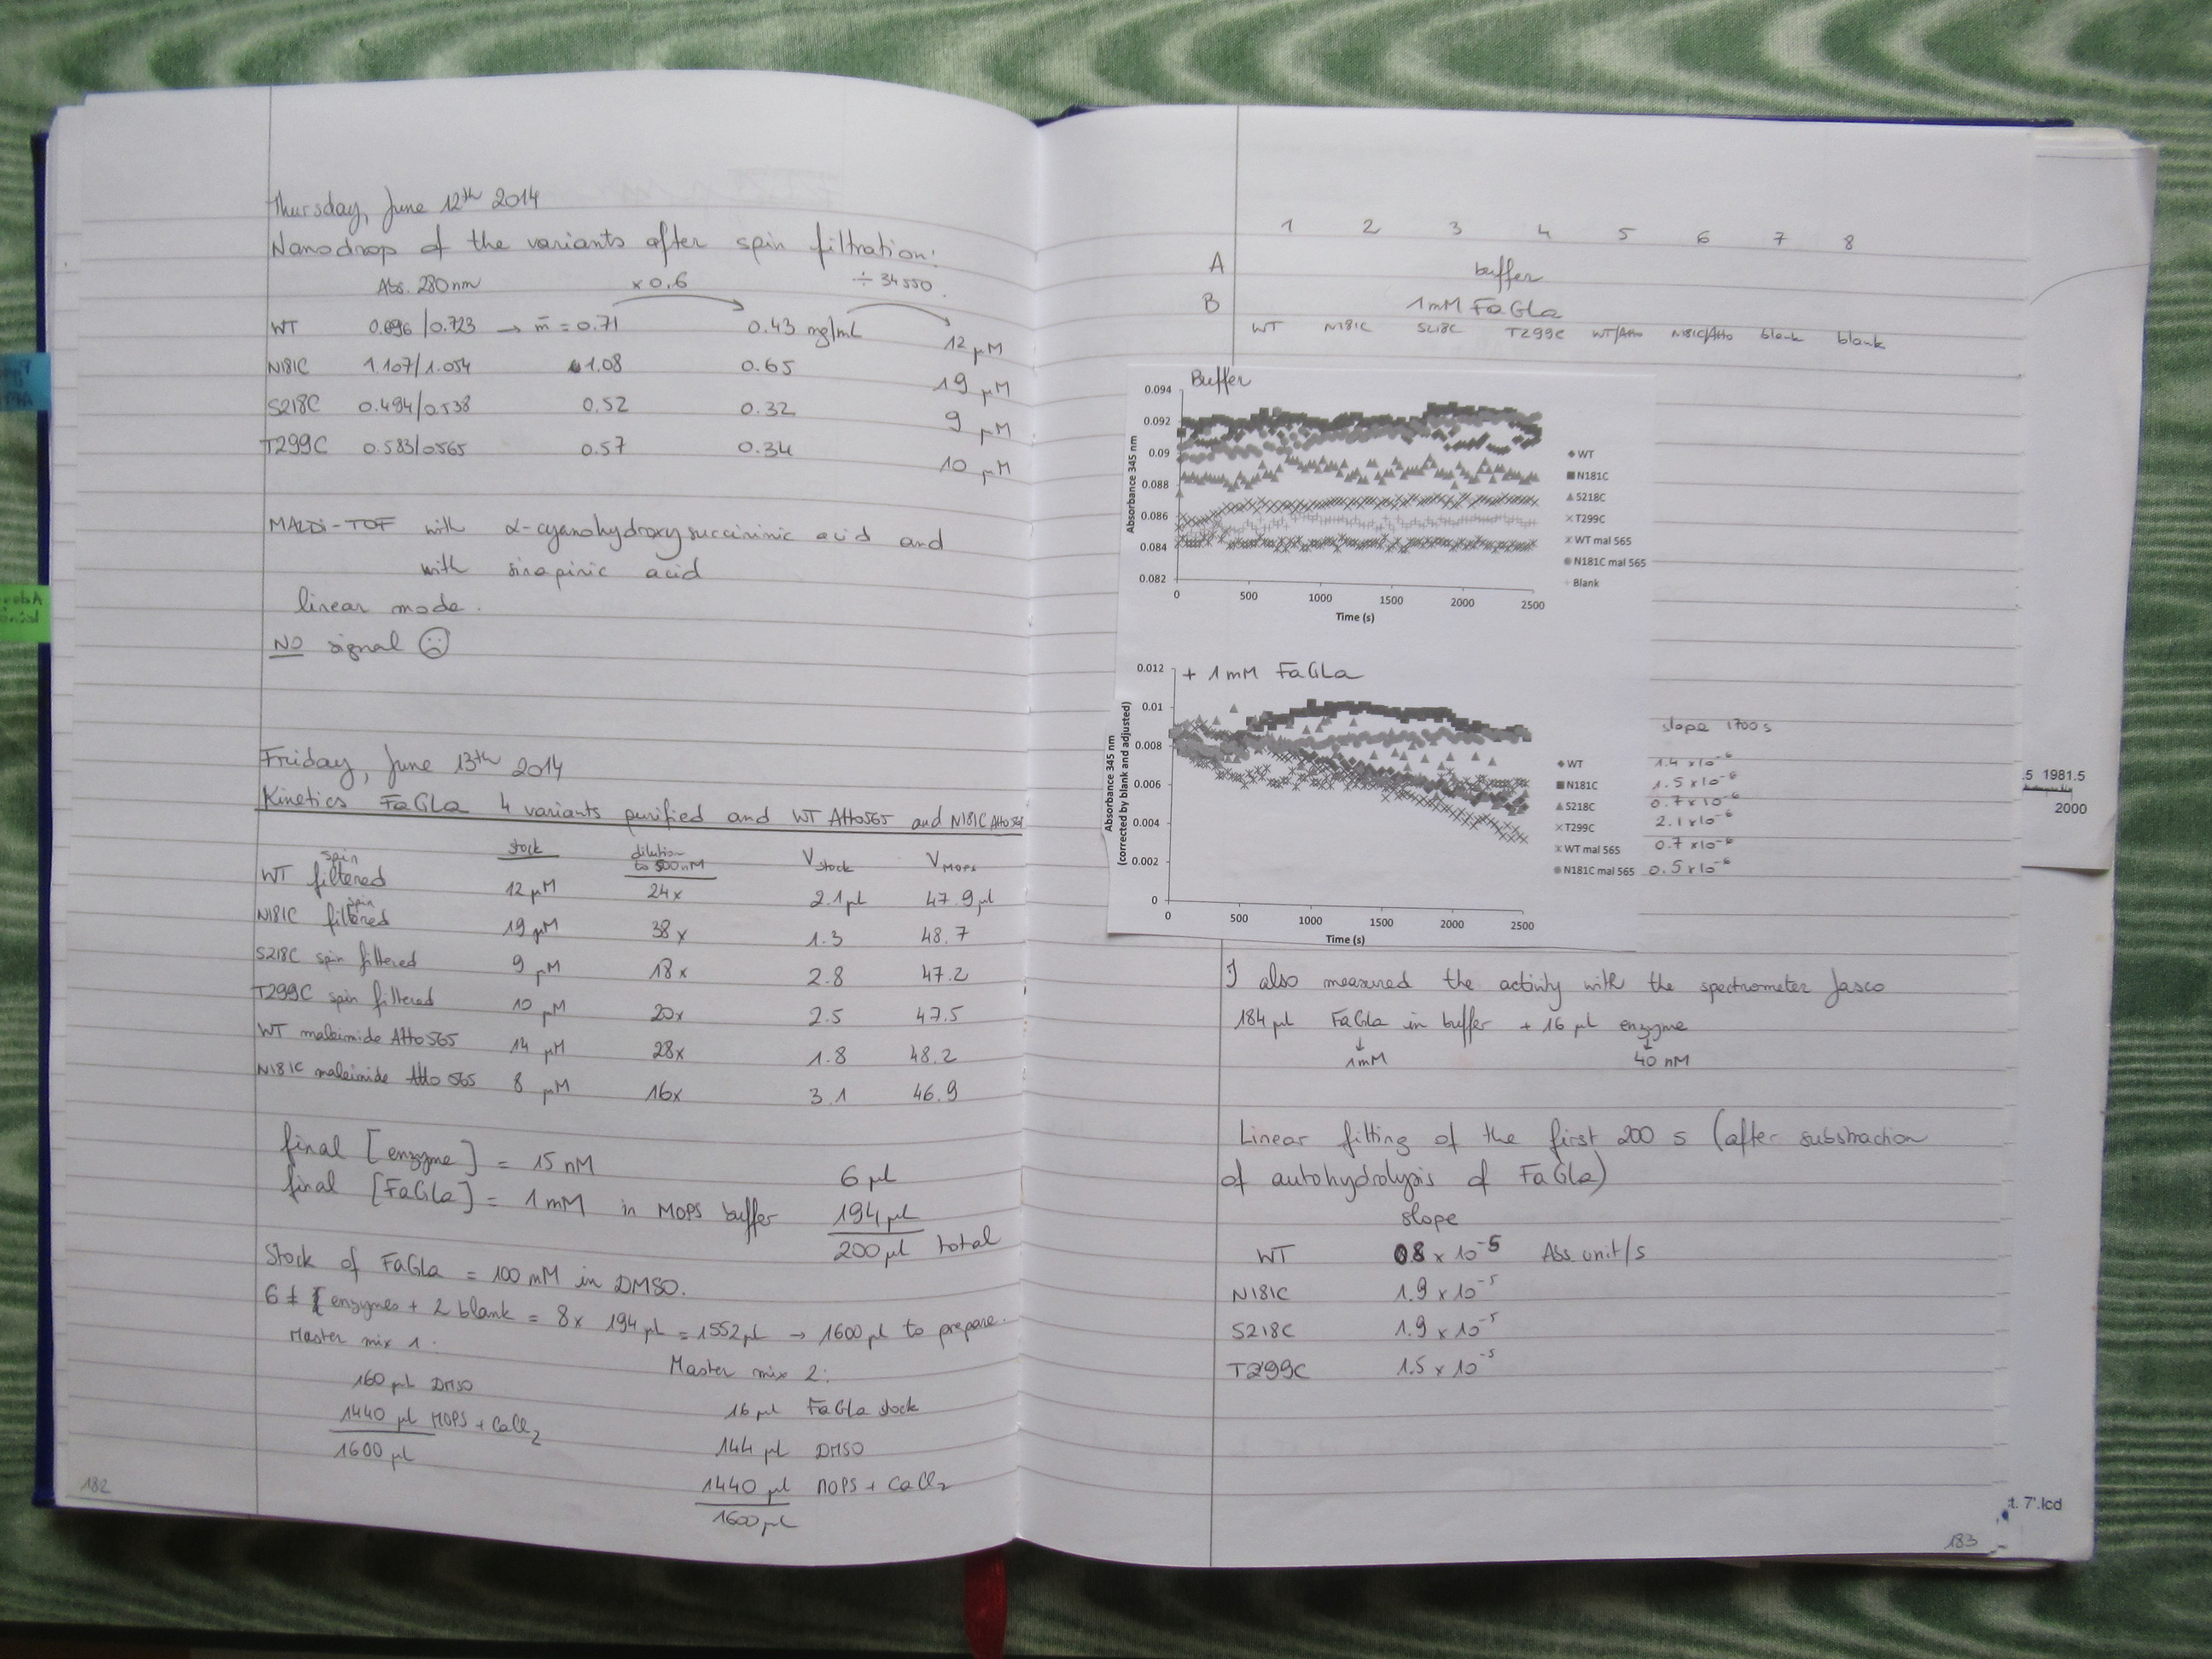 Thursday, June 12th 2014
Nanodrop of the variants after spin filtration:
Abs. 280nm ×0.6 ÷ 34550
WT 0.696/0.723 → m̄ = 0.71 0.43 mg/mL 12 µM
N181C 1.107/1.054 1.08 0.65 19 µM
S218C 0.494/0.538 0.52 0.32 9 µM
T299C 0.583/0.565 0.57 0.34 10 µM
MALDI-TOF with α-cyanohydroxysuccininic acid and
with sinapinic acid
linear mode.
NO signal ☹
Friday, June 13th 2014
Kinetics FaGLa 4 variants purified and WT Atto565 and N181C Atto 565
stock dilution to 500nM V stock V MOPS
WT spin filtered 12 µM 24x 2.1 µl 47.9 µl
N181C spin filtered 19 µM 38x 1.3 48.7
S218C spin filtered 9 µM 18x 2.8 47.2
T299C spin filtered 10 µM 20x 2.5 47.5
WT maleimide Atto565 14 µM 28x 1.8 48.2
N181C maleimide Atto 565 8 µM 16x 3.1 46.9
final [enzyme] = 15 nM 6 µl
final [FaGLa] = 1 mM in MOPS buffer 194 µl
200 µl total
Stock of FaGLa = 100 mM in DMSO.
6 ≠ enzymes + 2 blank = 8x 194 µl = 1552 µl → 1600 µl to prepare.
Master mix 1:
160 µl DMSO
1440 µl MOPS + CaCl2
1600 µl
Master mix 2:
16 µl FaGLa stock
144 µl DMSO
1440 µl MOPS + CaCl2
1600 µl
182
1 2 3 4 5 6 7 8
A buffer
B 1mM FaGLa
WT N181C S218C T299C WT/Atto N181C/Atto blank blank
Buffer
0.094
0.092
0.09
0.088
0.086
0.084
0.082
Absorbance 345 nm
0 500 1000 1500 2000 2500
Time (s)
WT
N181C
S218C
T299C
WT mal 565
N181C mal 565
Blank
+ 1mM FaGLa
0.012
0.01
0.008
0.006
0.004
0.002
0
Absorbance 345 nm
(corrected by blank and adjusted)
0 500 1000 1500 2000 2500
Time (s)
slope 1700 s
WT 1.4 x10-6
N181C 1.5 x10-6
S218C 0.7 x10-6
T299C 2.1 x10-6
WT mal 565 0.7 x10-6
N181C mal 565 0.5 x10-6
I also measured the activity with the spectrometer Jasco
184 µl FaGLa in buffer + 16 µl enzyme
↓ ↓
1mM 40 nM
Linear fitting of the first 200 s (after substraction
of autohydrolysis of FaGLa)
slope
WT 0.8 x 10-5 Abs unit/s
N181C 1.9 x 10-5
S218C 1.9 x 10-5
T299C 1.5 x 10-5
183
.5 1981.5
2000
t. 7'.lcd